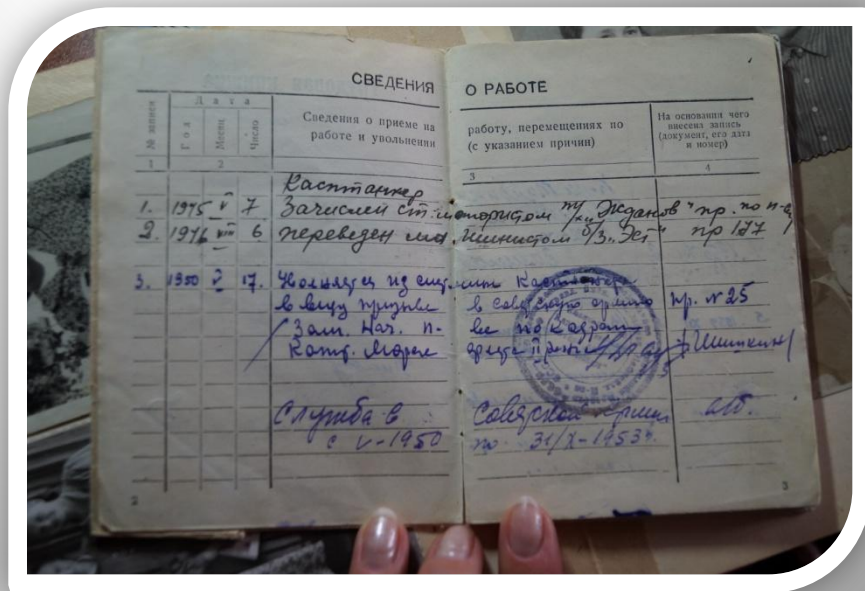 СВЕДЕНИЯ О РАБОТЕ
№ записи
Дата
Год
Месяц
Число
Сведения о приеме на
работе и увольнении
работу, перемещениях по
(с указанием причин)
На основании чего
внесена запись
(документ, его дата
и номер)
1 2 3 4
Касптанкер
1. 1945 V 7 Зачислен ст. мотористом "Жданов" пр. по
2. 1946 VIII 6 переведен "пр 177
3. 1950 V 17. из Касптанкер
в виду призыва в советскую армию пр. № 25
Зам. Нач. по кадрам
Шишкин
Служба в Советской Армии
с V-1950 по 31/X-1953г.
2
3